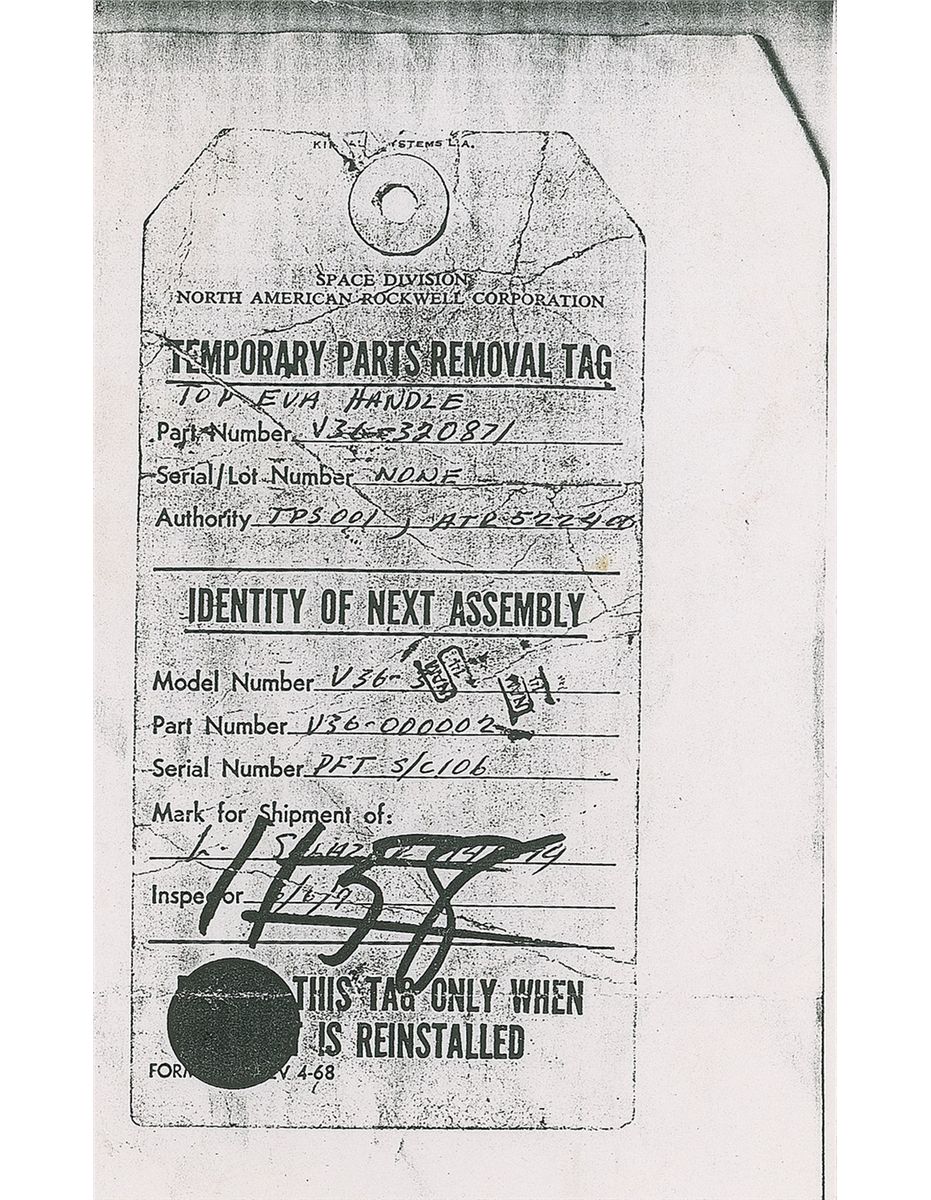 STEMS L.A.
SPACE DIVISION
NORTH AMERICAN ROCKWELL CORPORATION
TEMPORARY PARTS REMOVAL TAG
TOP EVA HANDLE
Part Number V36-320871
Serial/Lot Number NONE
Authority TPS001, ATR 522400
IDENTITY OF NEXT ASSEMBLY
Model Number V36-
Part Number V36-000002
Serial Number PFT S/C106
Mark for Shipment of:
1158
Inspector
THIS TAG ONLY WHEN
IS REINSTALLED
FORM 4-68